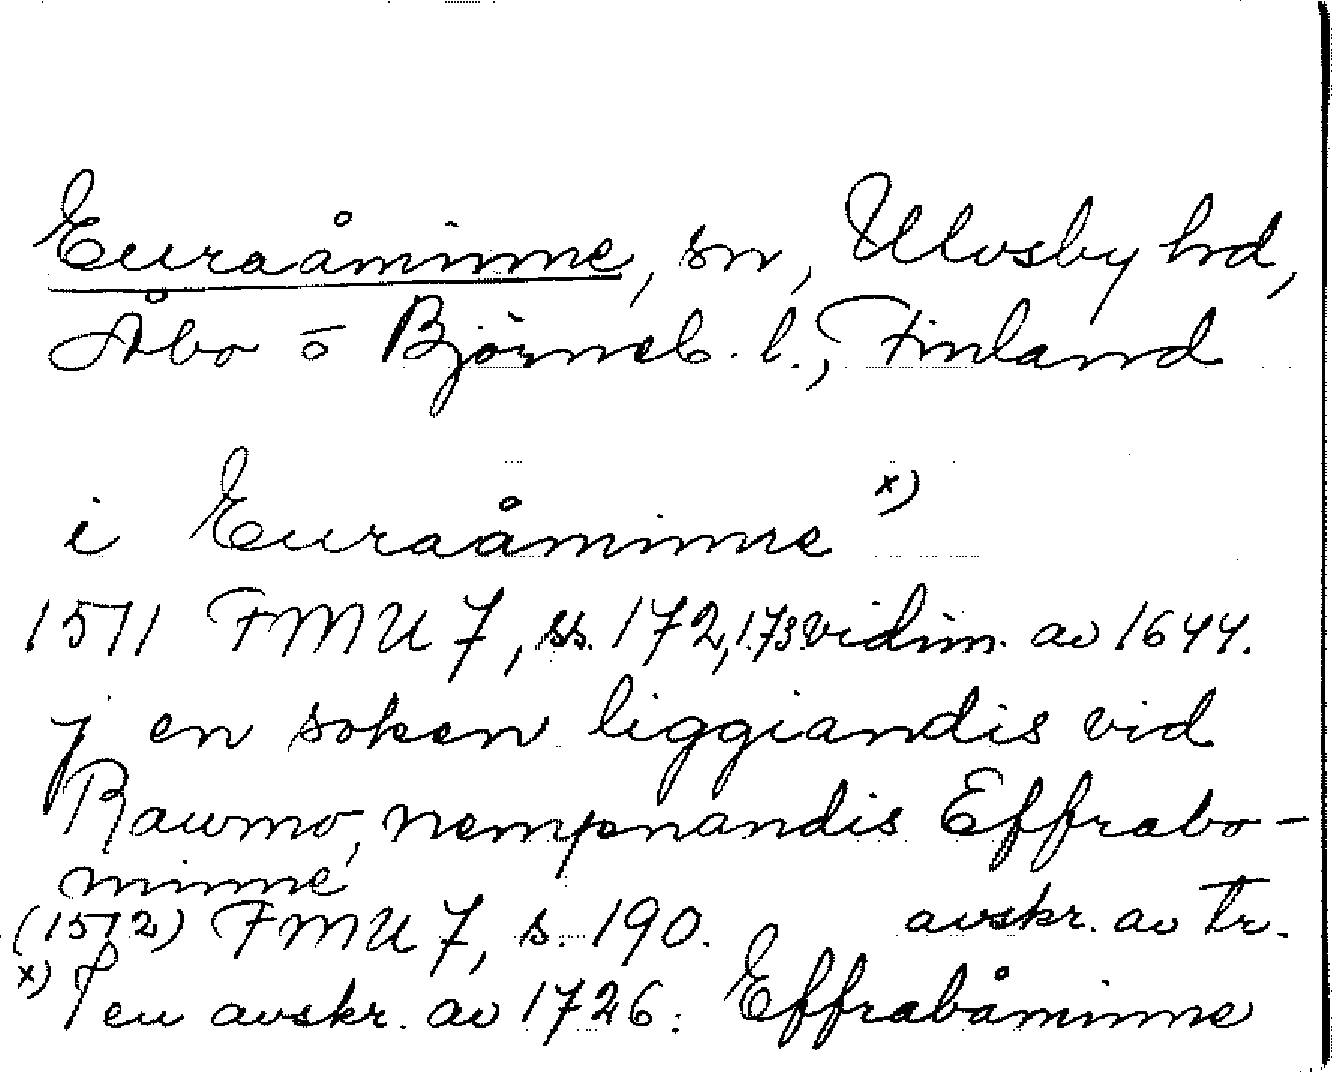 Euraåminne, sn, Ulvsby hd,
Åbo o Björneb. l., Finland
i Euraåminne x)
1511 FMU 7, ss. 172, 173. vidim. av 1644.
j en soken liggiandis vid
Rawmo, nempnandis Effrabo-
minne
(1512) FMU 7, s. 190. avskr. av Tr.
x) I en avskr. av 1726: Effrabåminne